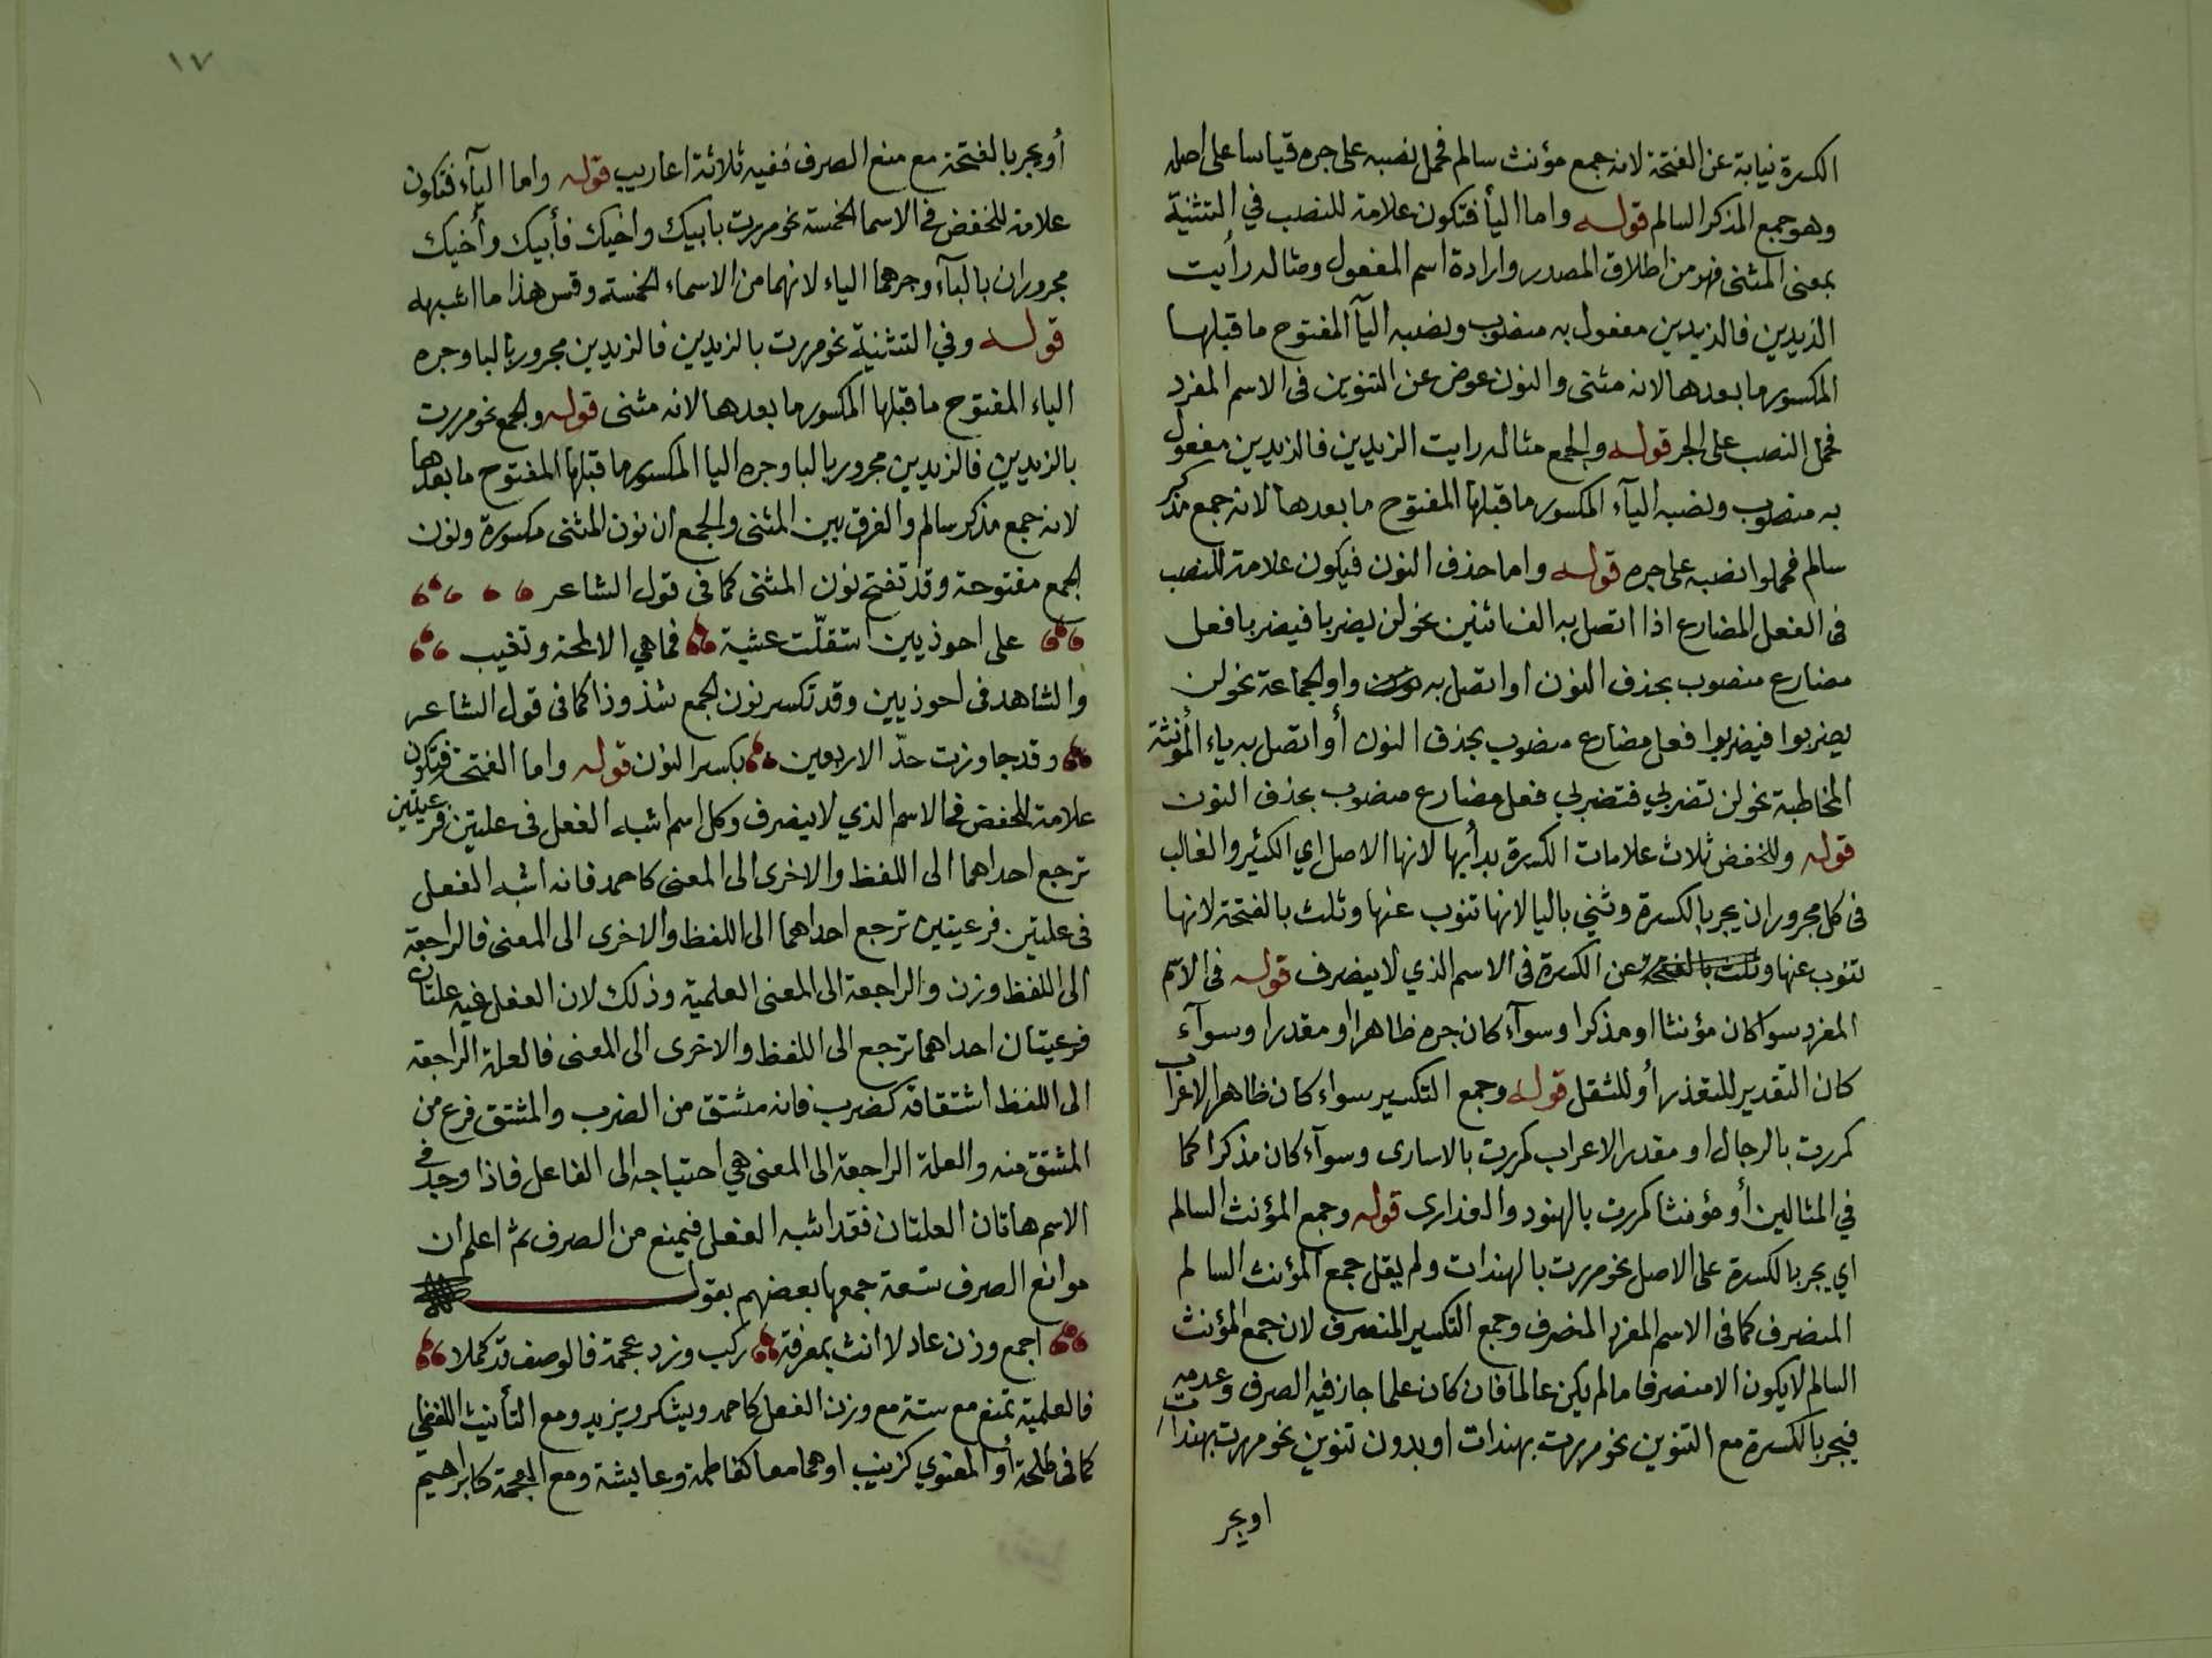 الكسرة نيابة عن الفتحة لانه جمع مؤنث سالم فحمل نصبه على جره قياسا على اصله
وهو جمع المذكر السالم قوله واما اليأ فتكون علامة للنصب في التثنية
بمعنى المثنى فهو من اطلاق المصدر وارادة اسم المفعول ومثاله رأيت
الزيدين فالزيدين مفعول به منصوب ونصبه اليآ المفتوح ما قبلها
المكسور ما بعدها لانه مثنى والنون عوض عن التنوين فى الاسم المفرد
فحمل النصب على الجر قوله والجمع مثاله رايت الزيدين فالزيدين مفعول
به منصوب ونصبه اليآء المكسور ما قبلها المفتوح ما بعدها لانه جمع مذكر
سالم فحملوا نصبه على جره قوله واما حذف النون فيكون علامة للنصب
فى الفعل المضارع اذا اتصل به الف اثنين نحو لن يضربا فيضربا فعل
مضارع منصوب بحذف النون او اتصل به واو الجماعة نحو لن
يضربوا فيضربوا فعل مضارع منصوب بحذف النون أو اتصل به ياء المؤنثة
المخاطبة نحو لن تضربي فتضربي فعل مضارع منصوب بحذف النون
قوله وللخفض ثلاث علامات الكسرة بدأ بها لانها الاصل اي الكثير والغالب
فى كل مجرور ان يجر بالكسرة وثني باليا لانها تنوب عنها وثلث بالفتحة لانها
تنوب عنها وثلث بالفتحة عن الكسرة فى الاسم الذي لا ينصرف قوله فى الاسم
المفرد سوا كان مؤنثا او مذكرا وسوآء كان جره ظاهرا او مقدرا وسوآء
كان التقدير للتعذر أو للثقل قوله وجمع التكسير سواء كان ظاهر الاعراب
كمررت بالرجال او مقدر الاعراب كمررت بالاسارى وسوآء كان مذكرا كما
في المثالين أو مؤنثا كمررت بالهنود والعذارى قوله وجمع المؤنث السالم
اي يجر بالكسرة على الاصل نحو مررت بالهندات ولم يقل جمع المؤنث السالم
المنصرف كما فى الاسم المفرد المنصرف وجمع التكسير المنصرف لان جمع المؤنث
السالم لا يكون الا منصرفا ما لم يكن عالما فان كان علما جاز فيه الصرف وعدمه
فيجر بالكسرة مع التنوين نحو مررت بهندات او بدون تنوين نحو مررت بهندات
او يجر
١٧
أو يجر بالفتحة مع منع الصرف ففيه ثلاثة اعاريب قوله واما اليآء فتكون
علامة للخفض فى الاسما الخمسة نحو مررت بابيك واخيك فأبيك وأخيك
مجروران باليآء وجرهما الياء لانهما من الاسماء الخمسة وقس هذا ما اشبهه
قوله وفي التثنية نحو مررت بالزيدين فالزيدين مجرور باليا وجره
الياء المفتوح ما قبلها المكسور ما بعدها لانه مثنى قوله والجمع نحو مررت
بالزيدين فالزيدين مجرور باليا وجره اليا المكسور ما قبلها المفتوح ما بعدها
لانه جمع مذكر سالم والفرق بين المثنى والجمع ان نون المثنى مكسورة ونون
الجمع مفتوحة وقد تفتح نون المثنى كما فى قول الشاعر
على احوذيين استقلّت عشية فما هي الا لمحة وتغيب
والشاهد فى احوذيين وقد تكسر نون الجمع شذوذا كما فى قول الشاعر
وقد جاوزت حدّ الاربعين بكسر النون قوله واما الفتحة فتكون
علامة للخفض فى الاسم الذي لا ينصرف وكل اسم اشبه الفعل فى علتين فرعيتين
ترجع احداهما الى اللفظ والاخرى الى المعنى كاحمد فانه اشبه الفعل
فى علتين فرعيتين ترجع احداهما الى اللفظ والاخرى الى المعنى فالراجعة
الى اللفظ وزن والراجعة الى المعنى العلمية وذلك لان الفعل فيه علتان
فرعيتان احداهما ترجع الى اللفظ والاخرى الى المعنى فالعلة الراجعة
الى اللفظ اشتقاقه كضرب فانه مشتق من الضرب والمشتق فرع من
المشتق منه والعلة الراجعة الى المعنى هي احتياجه الى الفاعل فاذا وجد في
الاسم هاتان العلتان فقد اشبه الفعل فيمنع من الصرف ثم اعلم ان
موانع الصرف تسعة جمعها بعضهم بقوله
اجمع وزن عادلا انث بمعرفة ركب وزد عجمة فالوصف قد كملا
فالعلمية تمنع مع ستة مع وزن الفعل كاحمد ويشكر ويزيد ومع التأنيث اللفظي
كما فى طلحة أو المعنوي كزينب او هما معا كفاطمة وعايشة ومع العجمة كابراهيم